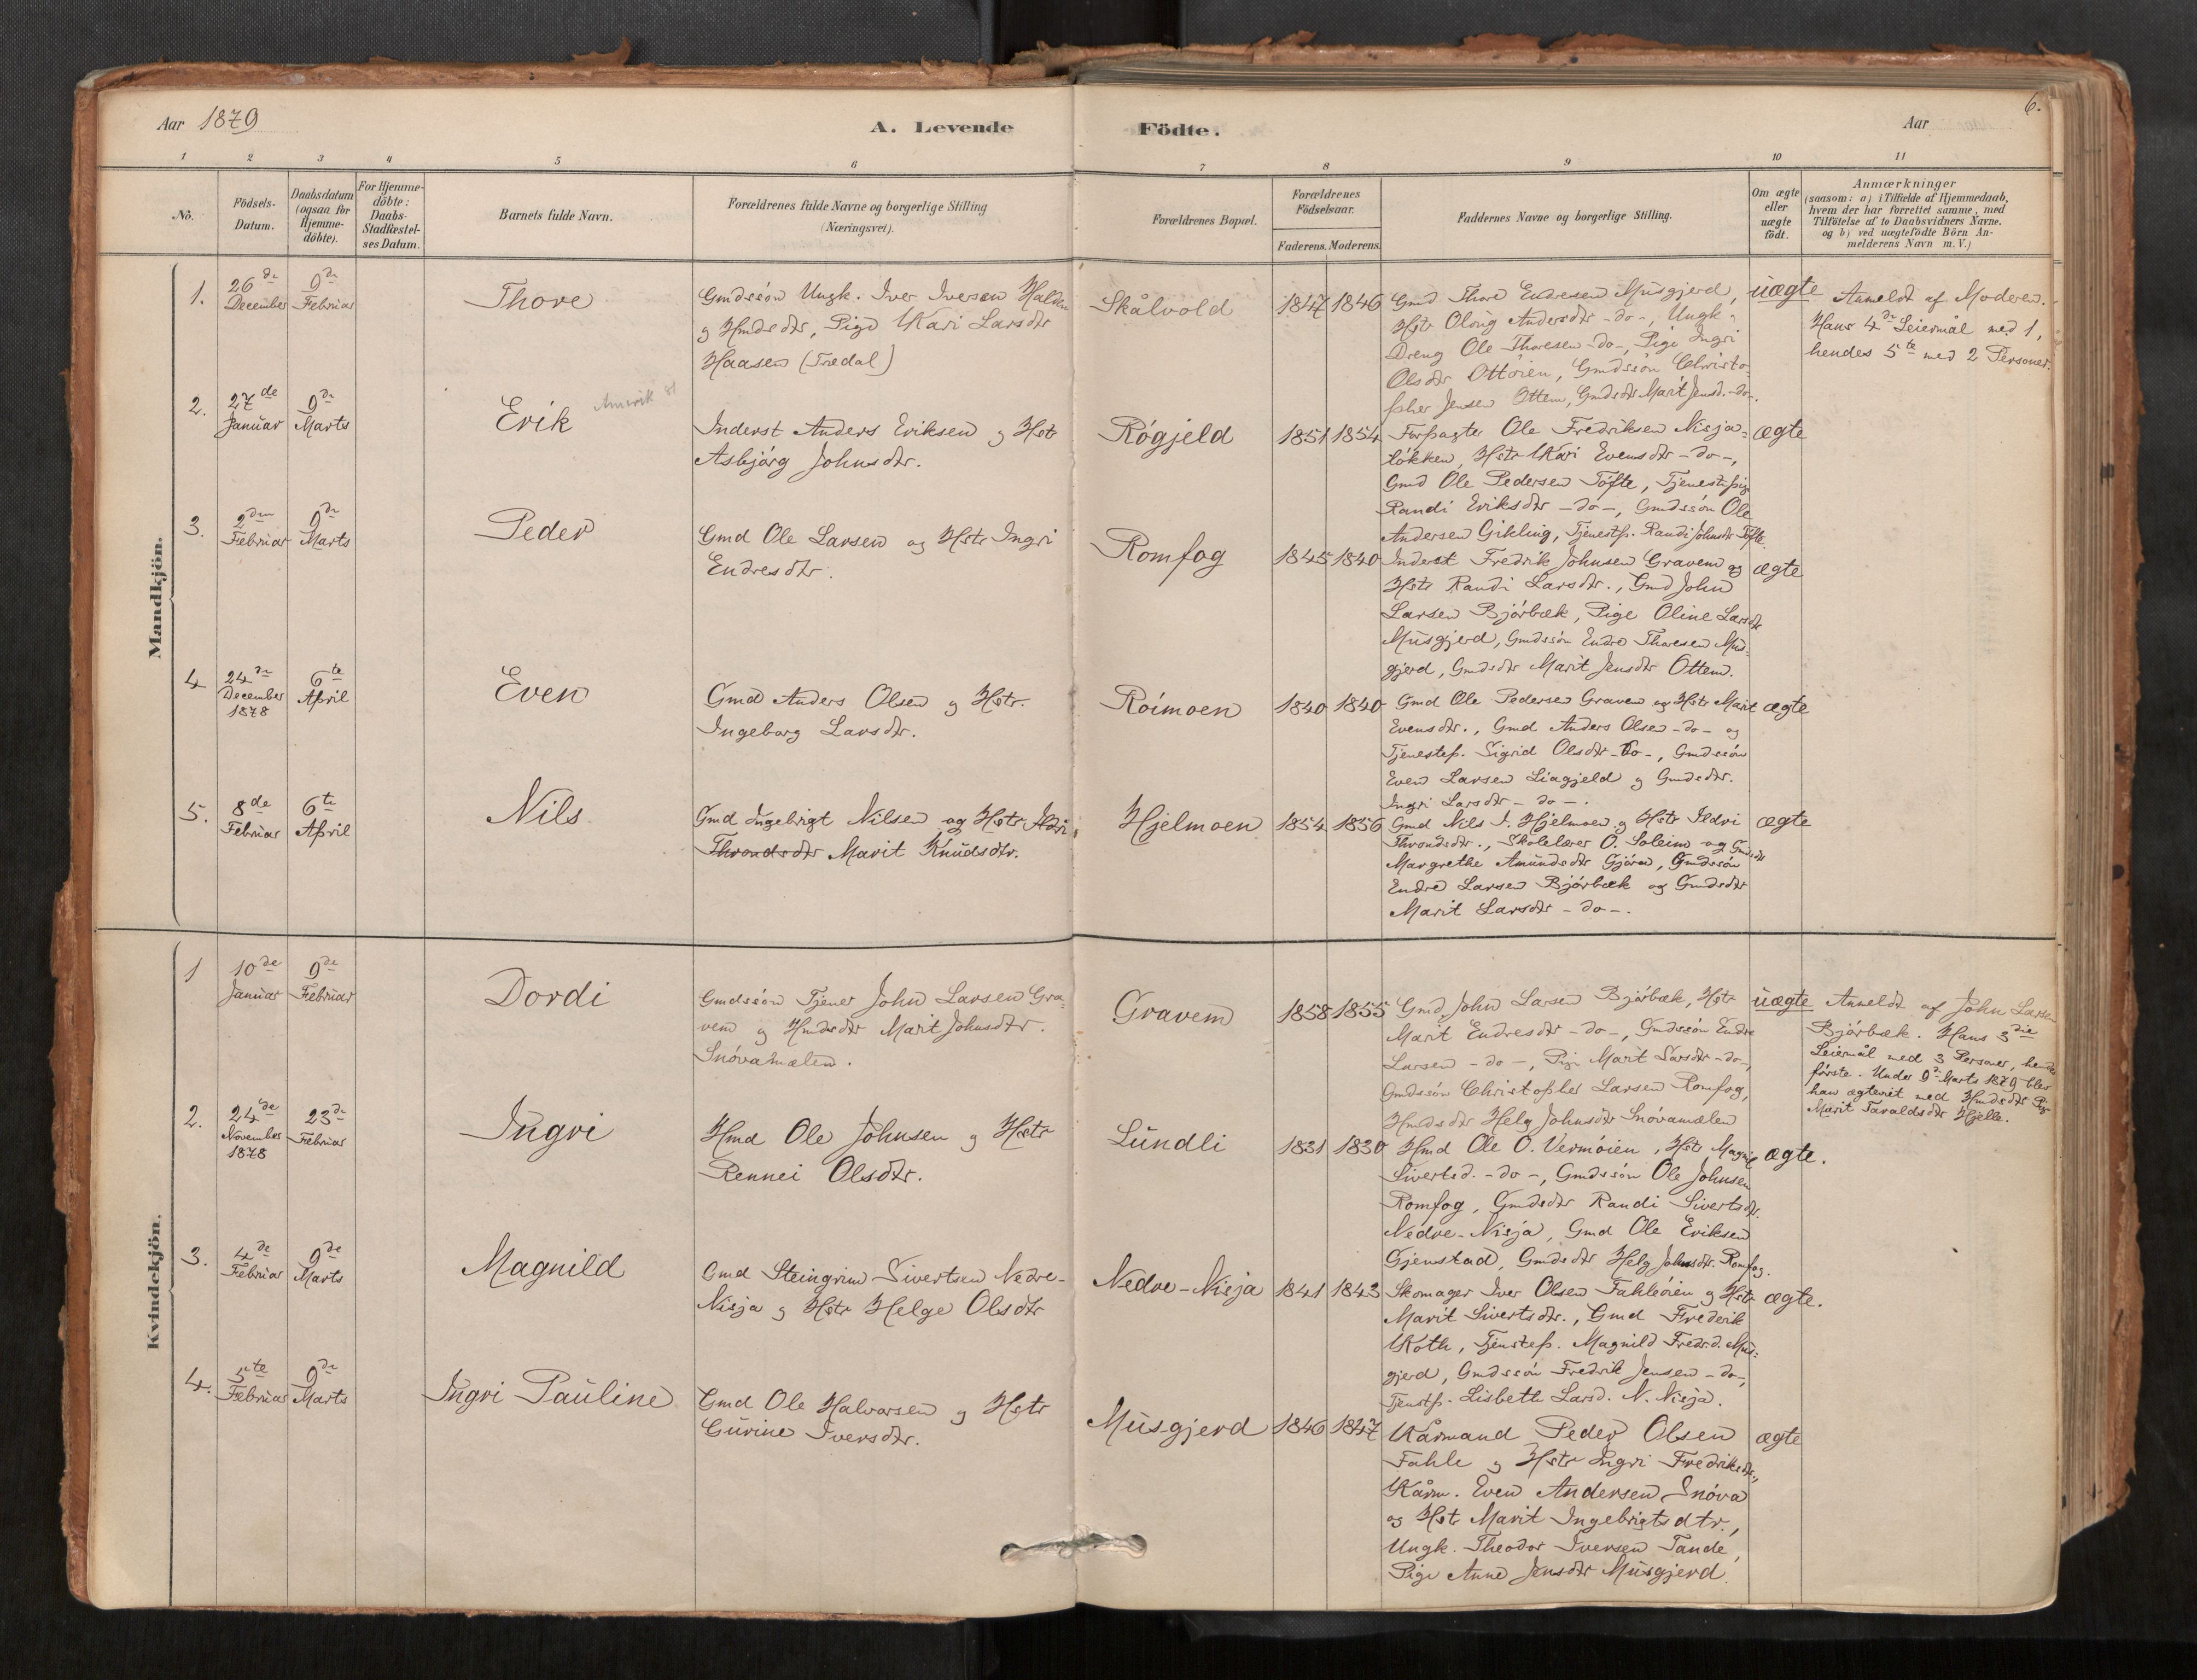 Aar 1879
A. Levende Födte.
Aar
6.
1 2 3 4 5 6 7 8 9 10 11
No.
Födsels-
Datum.
Daabsdatum
(ogsaa for
Hjemme-
döbte).
For Hjemme-
döbte:
Daabs-
Stadfæstel-
ses Datum.
Barnets fulde Navn.
Forældrenes fulde Navne og borgerlige Stilling
(Næringsvei).
Forældrenes Bopæl.
Forældrenes
Födselsaar.
Faderens. Moderens.
Faddernes Navne og borgerlige Stilling.
Om ægte
eller
uægte
födt.
Anmærkninger
(saasom: a) i Tilfælde af Hjemmedaab,
hvem der har forrettet samme, med
Tilföielse af to Daabsvidners Navne.
og b) ved uægtefödte Börn An-
melderens Navn m. V.)
Mandkjön.
1.
26de
December
9de
Februar
Thore
Gmdssön Ungk. Iver Iversen Halden
og Hmdsdtr, Pige Kari Larsdtr
Haasen (Tredal)
Skålvold
1847 1846
Gmd Thore Endresen Musgjerd,
Hstr Oloug Andersdtr -do-, Ungk.
Dreng Ole Thoresen -do-, Pige Ingri
Olsdtr Ottöien, Gmdssön Christo-
pher Jensen Ottem, Gmdsdtr Marit Jensd. -do-.
uægte
Anmeldt af Moderen.
Hans 4de Leiermål med 1,
hendes 5te med 2 Personer.
2.
27de
Januar
9de
Marts
Erik
Amerik 81
Inderst Anders Eriksen og Hstr
Asbjörg Johnsdtr.
Rögjeld
1851 1854
Forpagter Ole Fredriksen Nisja-
lökken, Hstr Kari Evensdtr -do-,
Gmd Ole Pedersen Töfte, Tjenestepig
Randi Eriksdtr -do-, Gmdssön Ole
Andersen Gikling, Tjenestp. Randi Johnsdtr Töfte.
ægte
3.
2den
Februar
9de
Marts
Peder
Gmd Ole Larsen og Hstr Ingri
Endresdtr.
Romfog
1845 1840
Inderst Fredrik Johnsen Gravem og
Hstr Randi Larsdtr., Gmd John
Larsen Bjørbæk, Pige Oline Larsdtr
Musgjerd, Gmdssön Endre Thoresen Mus-
gjerd, Gmdsdtr Marit Jensdtr Ottem.
ægte
4
24de
December
1878
6te
April
Even
Gmd Anders Olsen og Hstr.
Ingeborg Larsdtr.
Röimoen
1840 1840
Gmd Ole Pedersen Gravem og Hstr Marit
Evensdtr., Gmd Anders Olsen -do- og
Tjenestep. Sigrid Olsdtr -do-, Gmdssön
Even Larsen Liagjeld og Gmdsdtr.
Ingri Larsdtr -do-.
ægte
5.
8de
Februar
6te
April
Nils
Gmd Ingebrigt Nilsen og Hstr Ildri
Throndsdtr Marit Knudsdtr.
Hjelmoen
1854 1856
Gmd Nils I. Hjelmoen og Hstr Ildri
Throndsdtr., Skolelærer O. Soleim og Gmdsdtr
Margrethe Amundsdtr Gjöra, Gmdssön
Endre Larsen Bjørbæk og Gmdsdtr
Marit Larsdtr -do-.
ægte
Kvindekjön.
1
10de
Januar
9de
Februar
Dordi
Gmdssön Tjener John Larsen Gra-
vem og Hmdsdtr Marit Johnsdtr.
Snövamælen.
Gravem
1858 1855
Gmd John Larsen Bjørbæk, Hstr
Marit Endresdtr -do-, Gmdssön Endre
Larsen -do-, Pige Marit Larsdtr -do-,
Gmdssön Christopher Larsen Romfog,
Hmdsdtr Helg Johnsdtr Snövamælen
uægte
Anmeldt af John Larsen
Bjørbæk. Hans 3die
Leiermål med 3 Personer, hendes
förste. Under 9de Marts 1879 blev
han ægteviet med Hmdsdtr Pige
Marit Taraldsdtr Hjelle.
2.
24de
November
1878
23de
Februar
Ingri
Hmd Ole Johnsen og Hstr
Rennei Olsdtr.
Lundli
1831 1830
Hmd Ole O. Vermöien, Hstr Magnil
Sivertsd. -do-, Gmdssön Ole Johnsen
Romfog, Gmdsdtr Randi Sivertsdtr.
Nedre-Nisja, Gmd Ole Eriksen
Gjenstad, Gmdsdtr Helg Johnsdtr. Romfog.
ægte.
3.
4de
Februar
9de
Marts
Magnild
Gmd Steingrim Sivertsen Nedre-
Nisja og Hstr Helge Olsdtr
Nedre-Nisja
1841 1843
Skomager Iver Olsen Fahleöien og Hstr
Marit Sivertsdtr., Gmd Frederik
Koth, Tjenstep. Magnild Fredrd. Mus-
gjerd, Gmdssön Fredrik Jensen -do-,
Tjenstp. Lisbeth Larsd. N. Nisja.
ægte.
4.
5te
Februar
9de
Marts
Ingri Pauline
Gmd Ole Halvorsen og Hstr
Gurine Iversdtr.
Musgjerd
1846 1847
Kårmand Peder Olsen
Fahle og Hstr Ingri Fredriksdtr.,
Kårm. Even Andersen Snöva
og Hstr Marit Ingebrigtsdtr.,
Ungk. Theodor Iversen Tande,
Pige Anne Jensdtr Musgjerd.
ægte